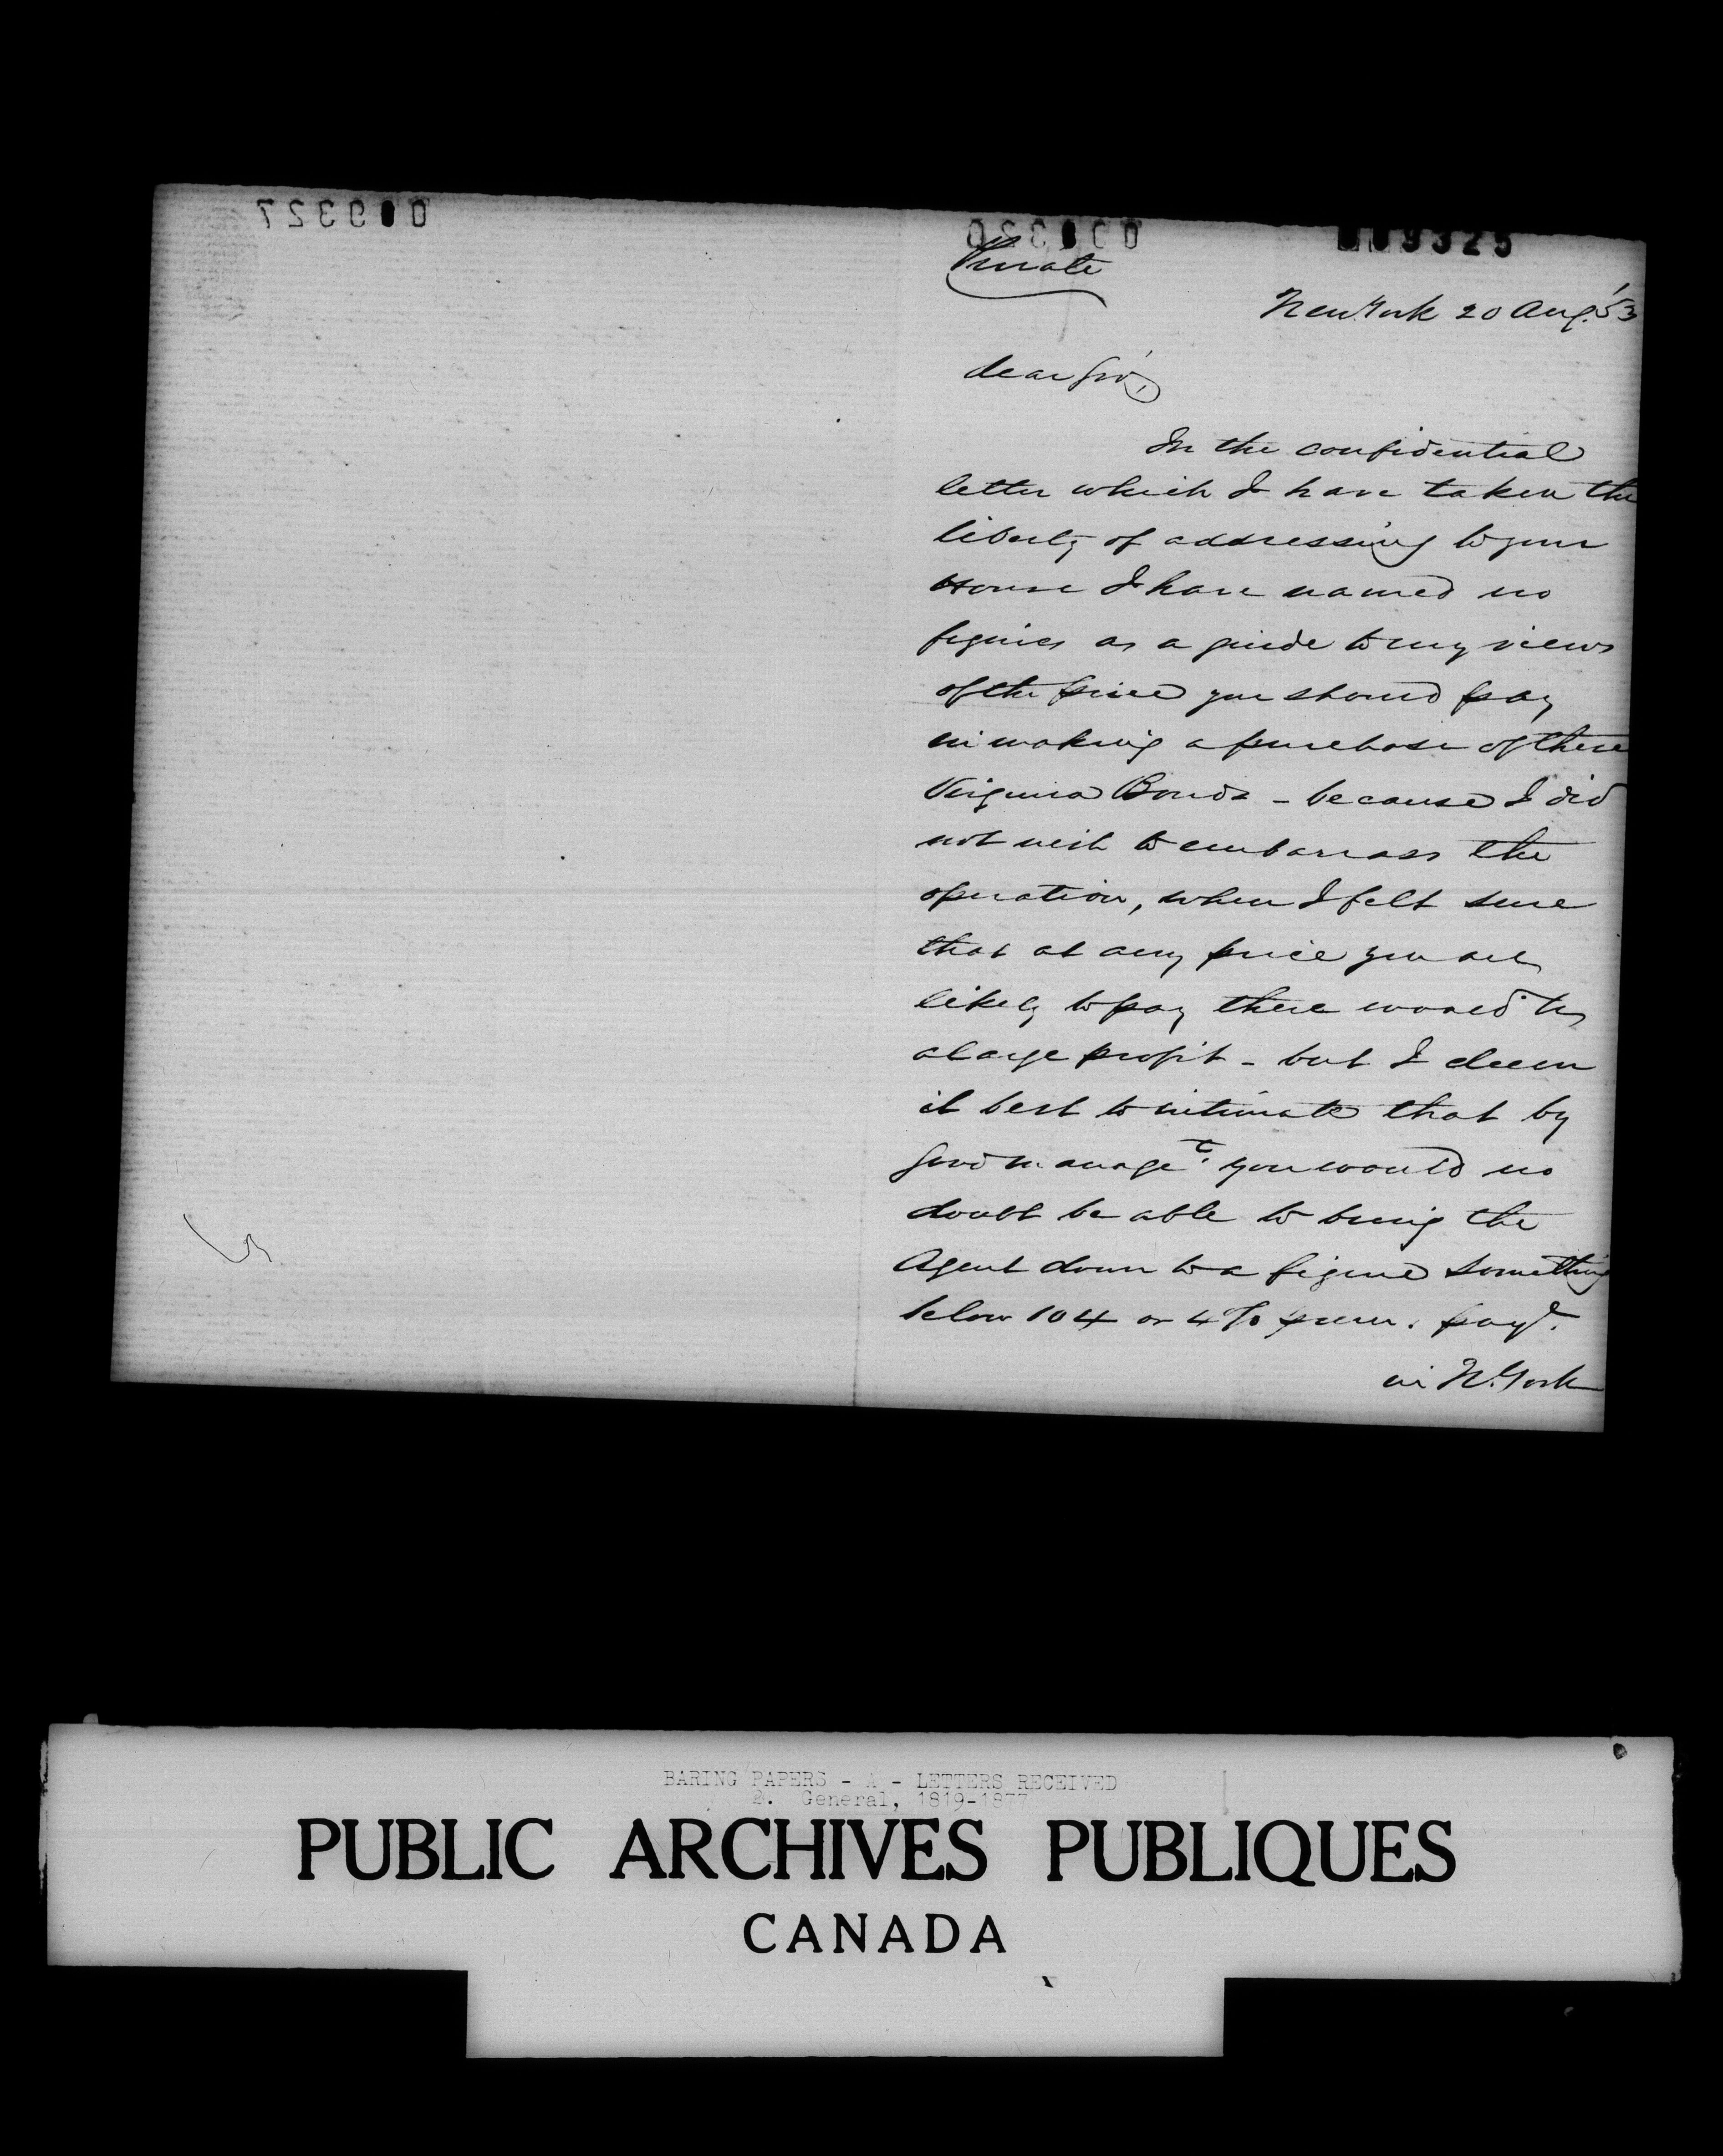 009327
009325
Private
New York 20 Aug. '53
dear Sir,
In the confidential
letter which I have taken the
liberty of addressing to your
House I have named no
figures as a guide to my views
of the price you should pay
in making a purchase of these
Virginia Bonds - because I did
not wish to embarrass the
operation, when I felt sure
that at any price you are
likely to pay there would be
a large profit - but I deem
it best to intimate that by
good manage.t you would no
doubt be able to bring the
Agent down to a figure something
below 104 or 4% prem. pay.
in N. York
BARING PAPERS - A - LETTERS RECEIVED
2. General, 1819-1877
PUBLIC ARCHIVES PUBLIQUES
CANADA